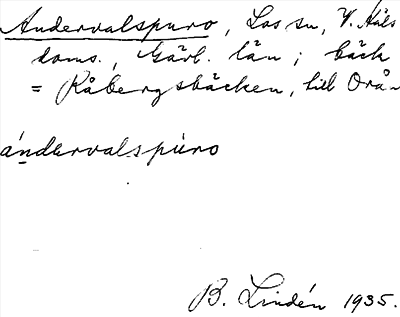 Andervalspuro, Los sn, V. Häls
doms., Gävl. län; bäck
= Kåbergsbäcken, till Orån
ándervalspúro
B. Lindén 1935.